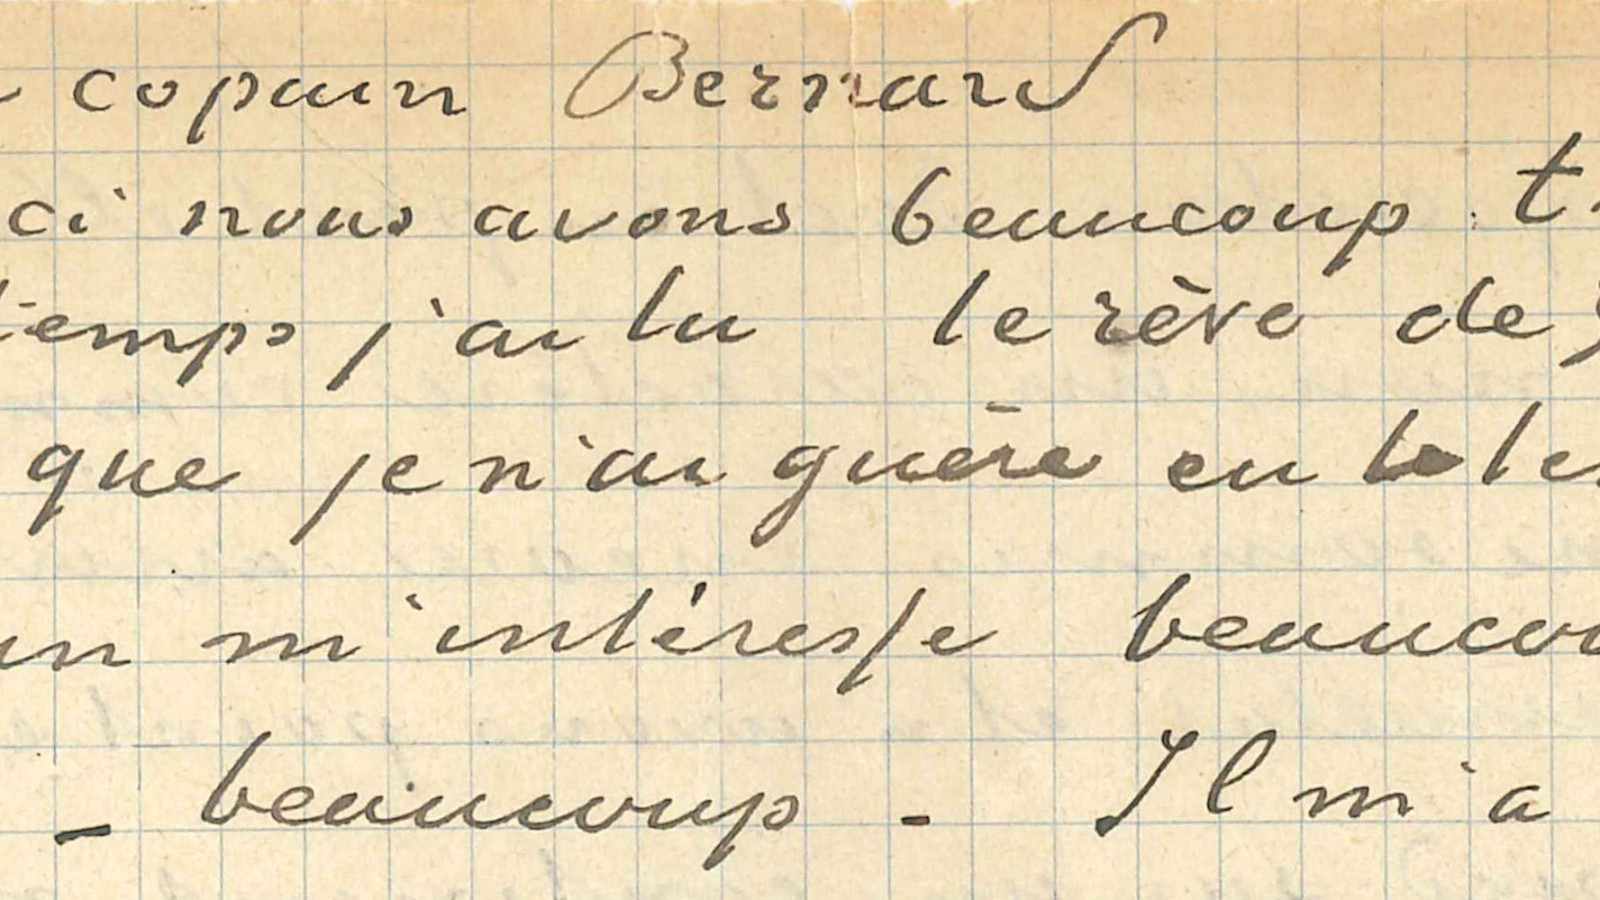 copain Bernard
ci nous avons beaucoup
temps j'ai lu le rêve de
que je n'ai guère eu le
m'intéresse beaucou
- beaucoup - Il m'a